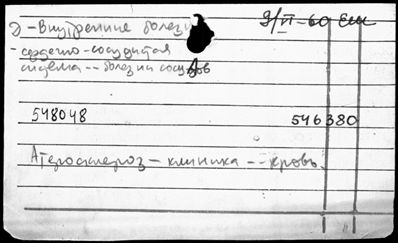 2) - Внутренние болезни 9/VI-60
- сердечно-сосудистая
система -- болезни сосудов
548048 546380
Атеросклероз - клиника -- кровь